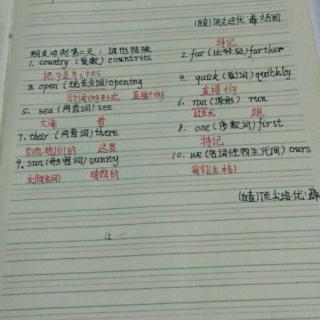 (自査)顶尖培优:薛
期末冲刺第二天:词性转换
特记
1. country (复数) countries
2. far (比较级) farther
把y变i+es
3. open (现在分词) opening
4. quick (副词) quickly
动词ing形式 直接+ing
直接+ly
5. sea (同音词) see
6. ran (原形) run
大海 看
过去式 跑
7. their (同音词) there
8. one (序数词) first
他们的 这里
特记
9. sun (形容词) sunny
10. we (名词性物主代词) ours
太阳(名词) 晴朗的
我们(主格)
顶尖培优:薛